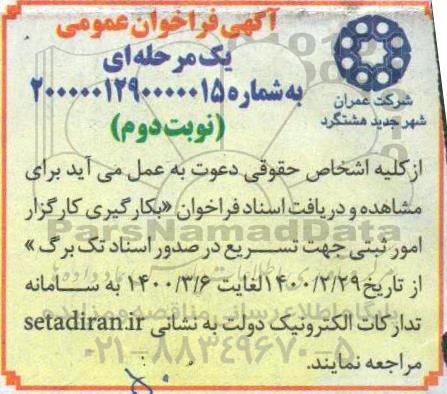 آگهی فراخوان عمومی
یک مرحله‌ای
به شماره ۲۰۰۰۰۰۱۲۹۰۰۰۰۰۱۵
(نوبت دوم)
شرکت عمران
شهر جدید هشتگرد
از کلیه اشخاص حقوقی دعوت به عمل می آید برای
مشاهده و دریافت اسناد فراخوان «بکارگیری کارگزار
امور ثبتی جهت تسریع در صدور اسناد تک برگ»
از تاریخ ۱۴۰۰/۲/۲۹ لغایت ۱۴۰۰/۳/۶ به سامانه
تدارکات الکترونیک دولت به نشانی setadiran.ir
مراجعه نمایند.
ParsNamadData
پایگاه اطلاع رسانی مناقصه و مزایده
۰۲۱-۸۸۳۴۹۶۷۰-۵